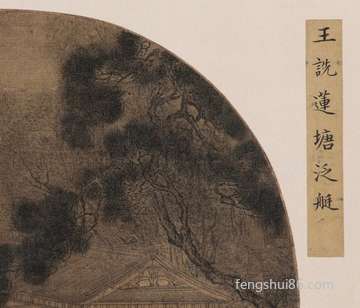 王詵蓮塘泛艇
fengshui86.com